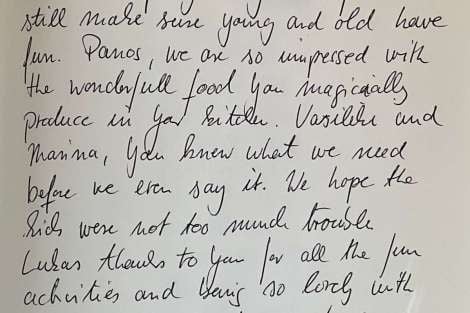 still make sure young and old have
fun. Panos, we are so impressed with
the wonderfull food you magicially
produce in your kitchen. Vasiliki and
Marina, you knew what we need
before we even say it. We hope the
kids were not too much trouble
Lukas thanks to you for all the fun
activities and being so lovely with